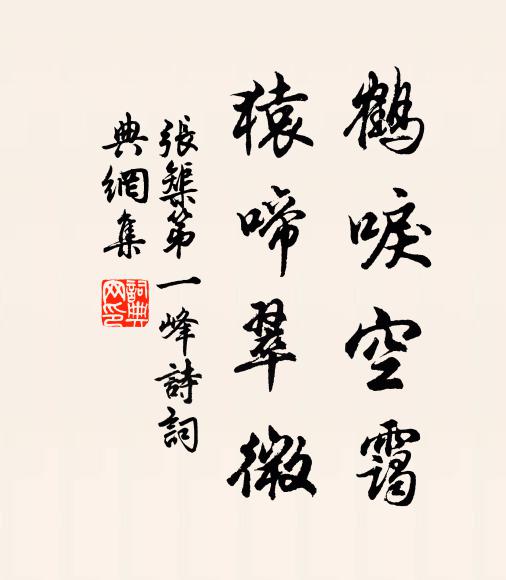 鶴唳空靄
猿啼翠微
張榘第一峰詩詞
典網集
詞典
网印